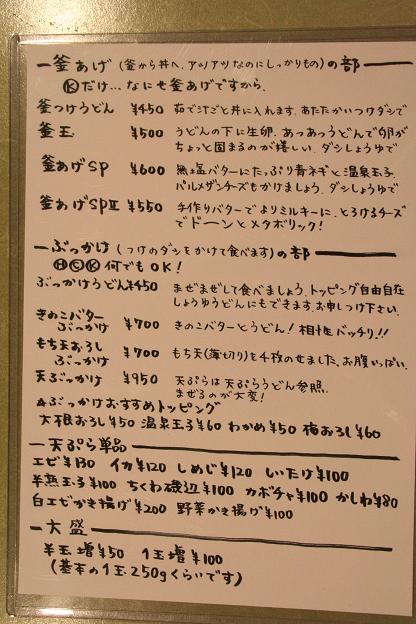 一釜あげ(釜から丼へ、アツアツなのにしっかりもの)の部
Ⓚだけ…なにも釜あげですから。
釜つけうどん ¥450 茹で汁ごと丼に入れます。あたたかいつけダシで
釜玉 ¥500 うどんの下に生卵。あっあっうどんで卵が
ちょっと固まるのが嬉しい。ダシしょうゆで
釜あげSP ¥600 無塩バターにたっぷり青ネギと温泉玉子
パルメザンチーズもかけましょう。ダシしょうゆで
釜あげSPⅡ ¥550 手作りバターでよりミルキーに、とろけるチーズ
でドーンとメタボリック!
一ぶっかけ(つけのダシをかけて食べます)の部
ⒽⒸⓀ何でもOK!
ぶっかけうどん¥450 まぜまぜして食べましょう。トッピング自由自在
しょうゆうどんにもできます。お申しつけ下さい。
きのこバター
ぶっかけ ¥700 きのこバターとうどん!相性バッチリ!!
もち天おろし
ぶっかけ ¥700 もち天(薄切り)を4枚のせました。お腹いっぱい。
天ぶっかけ ¥950 天ぷらは天ぷらうどん参照。
まぜるのが大変!
☆ぶっかけおすすめトッピング
大根おろし¥50 温泉玉子¥60 わかめ¥50 梅おろし¥60
一天ぷら単品
エビ¥130 イカ¥120 しめじ¥120 しいたけ¥100
半熟玉子¥100 ちくわ磯辺¥100 カボチャ¥100 かしわ¥80
白エビかき揚げ¥200 野菜かき揚げ¥100
一大盛
半玉増¥50 1玉増¥100
(基本の1玉、250gくらいです)